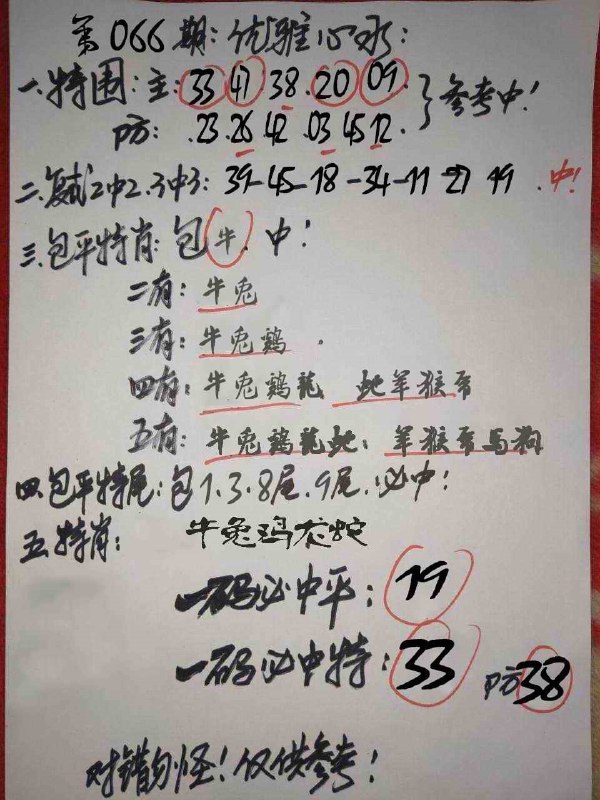 第066期:优雅心水:
一.特围:主:33 41 38.20 09.
防:.23.26 42 .03 45 12. }参考中!
二.复式2中2.3中3:39-45-18-34-11 27 49 .中!
三.包平特肖:包牛.中!
二有:牛兔
三有:牛兔鸡.
四有:牛兔鸡龍 蛇羊猴帝
五有:牛兔鸡龍蛇: 羊猴帝马狗
四.包平特尾:包1.3.8尾.9尾.必中!
五.特肖: 牛兔鸡龙蛇
一码必中平:19
一码必中特:33 防38
对错勿怪!仅供参考!